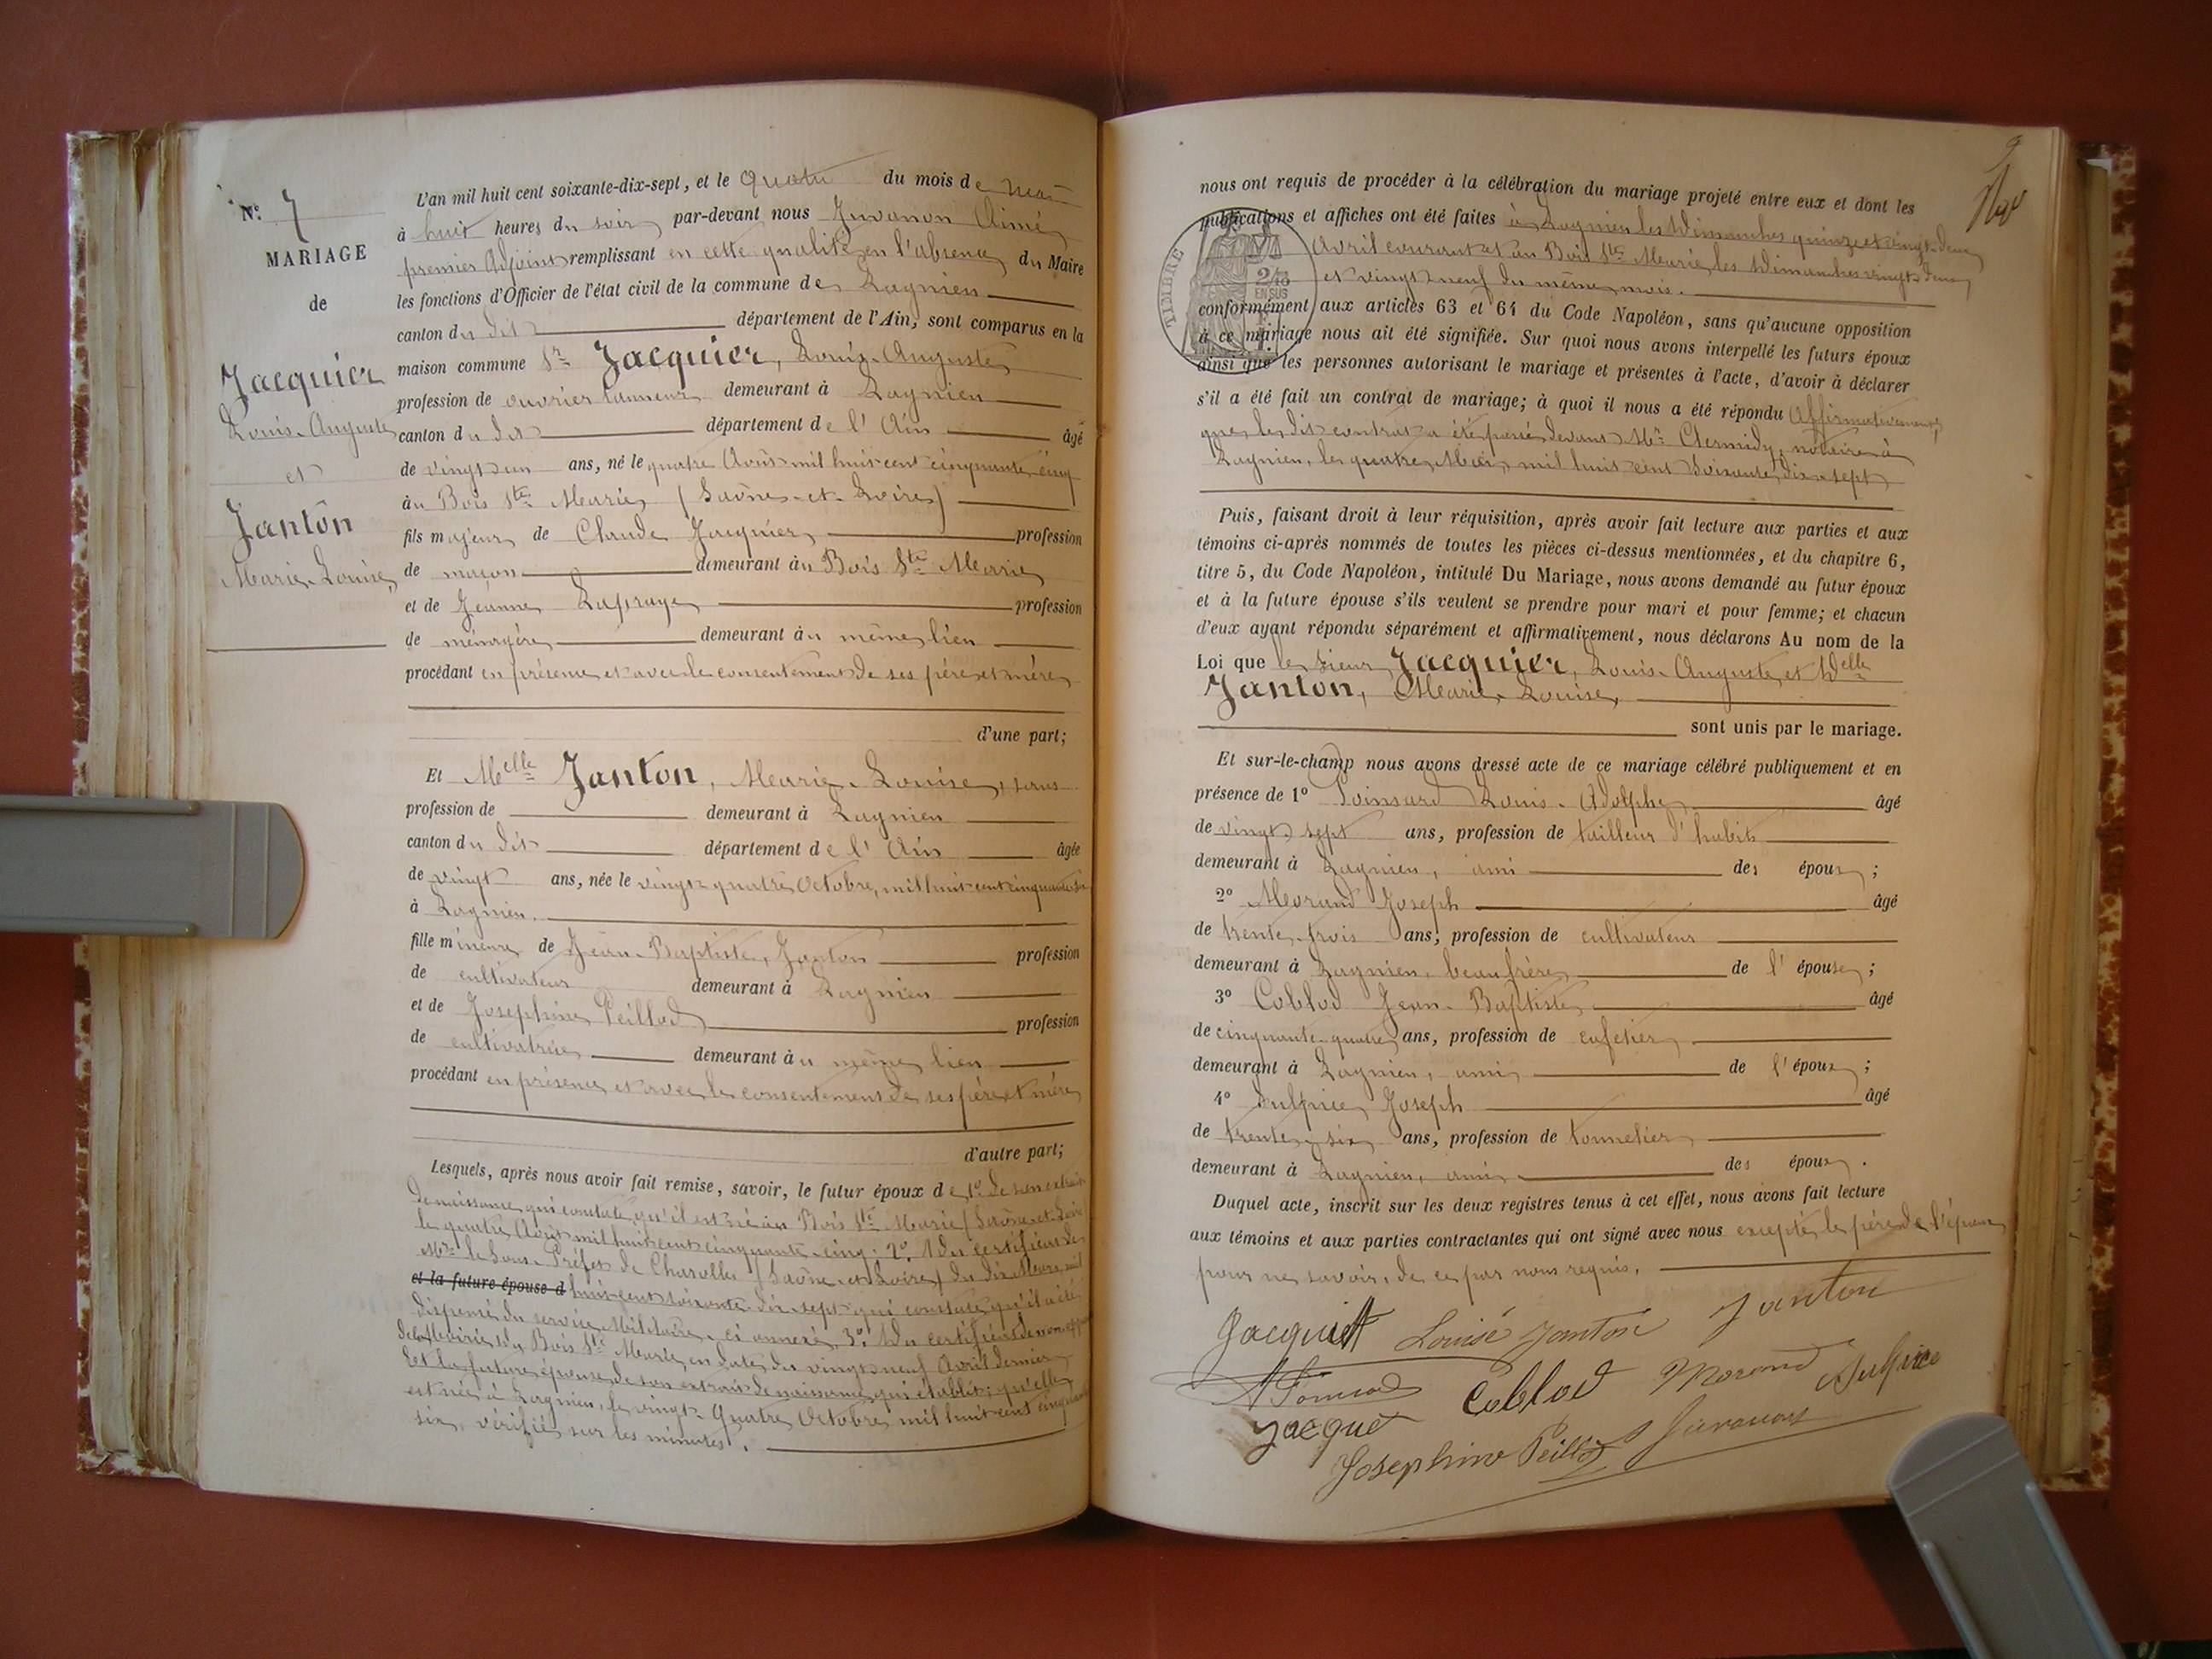 N° 7
MARIAGE
de
Jacquier
Louis-Auguste
et
Janton
Marie-Louise
L'an mil huit cent soixante-dix-sept, et le quatre du mois de mai
à huit heures du soir par-devant nous Juvanon Aimé
premier Adjoint remplissant en cette qualité en l'absence du Maire
les fonctions d'Officier de l'état civil de la commune de Lagnieu
canton du dit département de l'Ain, sont comparus en la
maison commune Sr Jacquier, Louis-Auguste
profession de ouvrier tanneur demeurant à Lagnieu
canton du dit département de l'Ain âgé
de vingt un ans, né le quatre Août mil huit cent cinquante cinq
au Bois Ste Marie (Saône-et-Loire)
fils majeur de Claude Jacquier profession
de maçon demeurant au Bois Ste Marie
et de Jeanne Lapraye profession
de ménagère demeurant au même lieu
procédant en présence et avec le consentement de ses père et mère
d'une part;
Et Melle Janton, Marie-Louise, sans
profession de demeurant à Lagnieu
canton du dit département de l'Ain âgée
de vingt ans, née le vingt-quatre Octobre, mil huit cent cinquante six
à Lagnieu.
fille mineure de Jean-Baptiste, Janton profession
de cultivateur demeurant à Lagnieu
et de Josephine Peillod profession
de cultivatrice demeurant au même lieu
procédant en présence et avec le consentement de ses père et mère
d'autre part;
Lesquels, après nous avoir fait remise, savoir, le futur époux de 1° de son extrait
de naissance qui constate qu'il est né au Bois Ste Marie (Saône-et-Loire
le quatre Août mil huit cent cinquante-cinq. 2° du certificat de
Mr le Sous-Préfet de Charolles (Saône-et-Loire) du dix Mars mil
et la future épouse d huit cent soixante dix-sept qui constate qu'il a été
dispensé du service Militaire, ci annexé, 3° du certificat de non
de la Mairie du Bois Ste Marie en date du vingt neuf Avril dernier
Et la future épouse de son extrait de naissance qui établit qu'elle
est née à Lagnieu, le vingt-quatre Octobre mil huit cent cinquante
six, vérifié sur les minutes.
9
nous ont requis de procéder à la célébration du mariage projeté entre eux et dont les
publications et affiches ont été faites à Lagnieu les Dimanches quinze et vingt-deux
Avril courant et au Bois Ste Marie les Dimanches vingt-deux
et vingt neuf du même mois.
TIMBRE
2/10
EN SUS
conformément aux articles 63 et 64 du Code Napoléon, sans qu'aucune opposition
à ce mariage nous ait été signifiée. Sur quoi nous avons interpellé les futurs époux
ainsi que les personnes autorisant le mariage et présentes à l'acte, d'avoir à déclarer
s'il a été fait un contrat de mariage; à quoi il nous a été répondu Affirmativement,
que le dit contrat a été passé devant Me Clermidy, notaire à
Lagnieu, le quatre Mai mil huit cent soixante dix-sept
Puis, faisant droit à leur réquisition, après avoir fait lecture aux parties et aux
témoins ci-après nommés de toutes les pièces ci-dessus mentionnées, et du chapitre 6,
titre 5, du Code Napoléon, intitulé Du Mariage, nous avons demandé au futur époux
et à la future épouse s'ils veulent se prendre pour mari et pour femme; et chacun
d'eux ayant répondu séparément et affirmativement, nous déclarons Au nom de la
Loi que le sieur Jacquier, Louis-Auguste, et Delle
Janton, Marie-Louise,
sont unis par le mariage.
Et sur-le-champ nous avons dressé acte de ce mariage célébré publiquement et en
présence de 1° Poinsard Louis-Adolphe âgé
de vingt-sept ans, profession de tailleur d'habits
demeurant à Lagnieu, ami des époux ;
2° Morand Joseph âgé
de trente-trois ans, profession de cultivateur
demeurant à Lagnieu, beau frère de l'épouse ;
3° Coblod Jean-Baptiste âgé
de cinquante-quatre ans, profession de cafetier
demeurant à Lagnieu, ami de l'époux ;
4° Sulpice Joseph âgé
de trente-six ans, profession de tonnelier
demeurant à Lagnieu, ami des époux .
Duquel acte, inscrit sur les deux registres tenus à cet effet, nous avons fait lecture
aux témoins et aux parties contractantes qui ont signé avec nous excepté le père de l'époux
pour ne savoir, de ce par nous requis.
Jacquier Louise Janton Janton
Coblod Morand Sulpice
Jacque
Josephine Peillod Juvanon